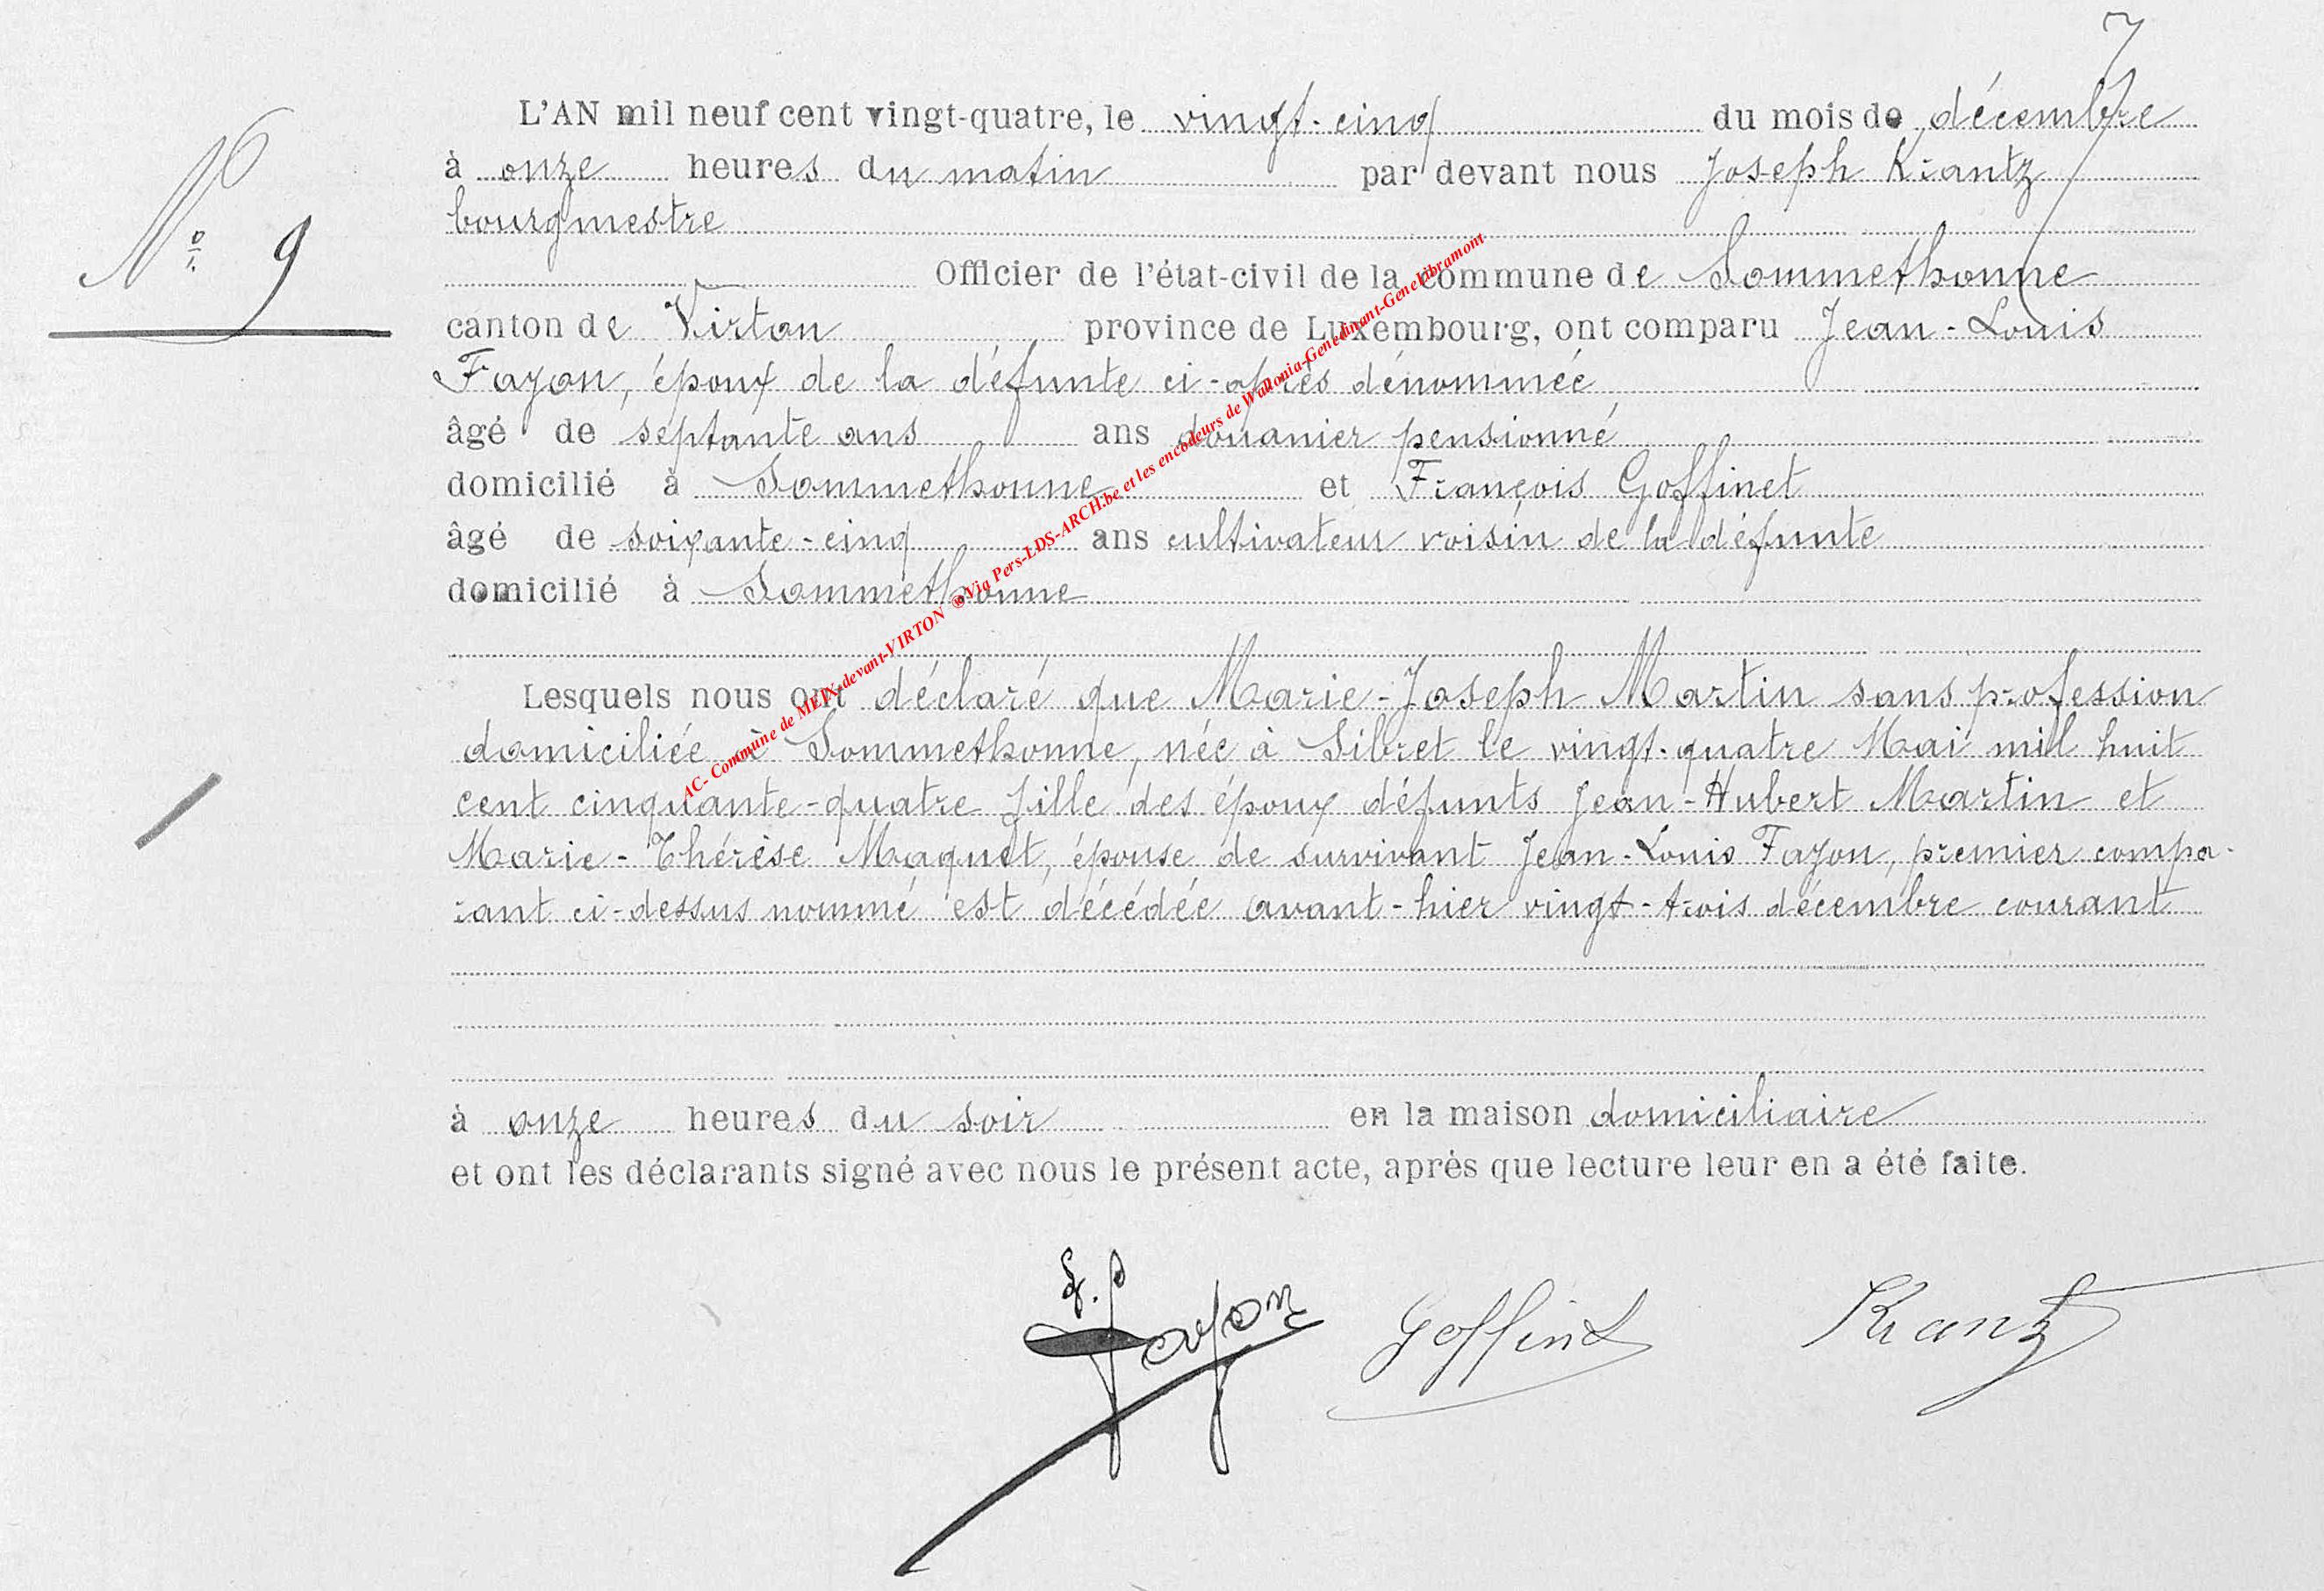 7
L'AN mil neuf cent vingt-quatre, le vingt-cinq du mois de décembre
à onze heures du matin par devant nous Joseph Krantz
bourgmestre
N° 9
Officier de l'état-civil de la commune de Sommethonne
canton de Virton province de Luxembourg, ont comparu Jean-Louis
Fayon, époux de la défunte ci-après dénommée
âgé de septante ans ans douanier pensionné
domicilié à Sommethonne et François Goffinet
âgé de soixante-cinq ans cultivateur voisin de la défunte
domicilié à Sommethonne
Lesquels nous ont déclaré que Marie-Joseph Martin sans profession
domiciliée à Sommethonne, née à Sibret le vingt-quatre Mai mil huit
cent cinquante-quatre fille des époux défunts Jean-Hubert Martin et
Marie-Thérèse Maquet, épouse de survivant Jean-Louis Fayon, premier compa-
rant ci-dessus nommé est décédée avant-hier vingt-trois décembre courant
à onze heures du soir en la maison domiciliaire
et ont les déclarants signé avec nous le présent acte, après que lecture leur en a été faite.
Fayon Goffinet Krantz
AC- Commune de MEIX-devant-VIRTON ®Via Pers-LDS-ARCH.be et les encodeurs de Wallonia-Genedinant-Genelibramont